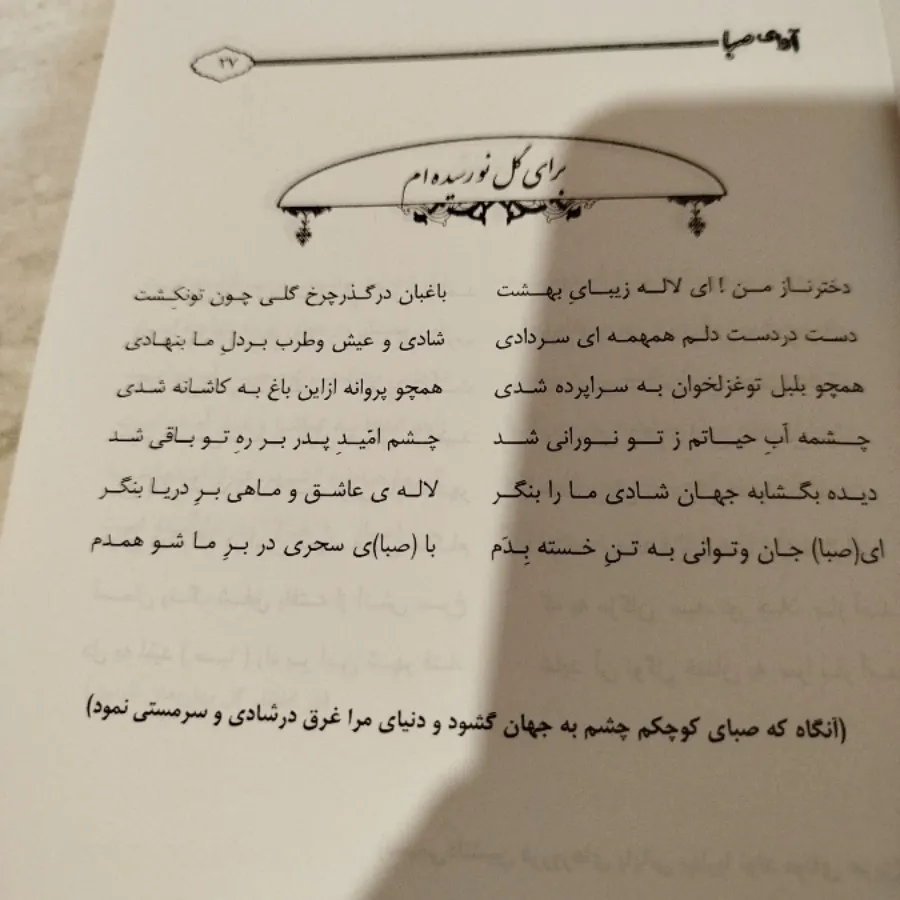 آوای صبا
۲۷
برای گل نورسیده ام
دخترناز من ! ای لاله زیبایِ بهشت باغبان درگذرچرخ گلی چون تونکِشت
دست دردست دلم همهمه ای سردادی شادی و عیش وطرب بردلِ ما بنهادی
همچو بلبل توغزلخوان به سراپرده شدی همچو پروانه ازاین باغ به کاشانه شدی
چشمه آبِ حیاتم ز تو نورانی شد چشم امّیدِ پدر بر رهِ تو باقی شد
دیده بگشابه جهان شادی ما را بنگر لاله ی عاشق و ماهی برِ دریا بنگر
ای(صبا) جان وتوانی به تنِ خسته بِدَم با (صبا)ی سحری در برِ ما شو همدم
(آنگاه که صبای کوچکم چشم به جهان گشود و دنیای مرا غرق درشادی و سرمستی نمود)